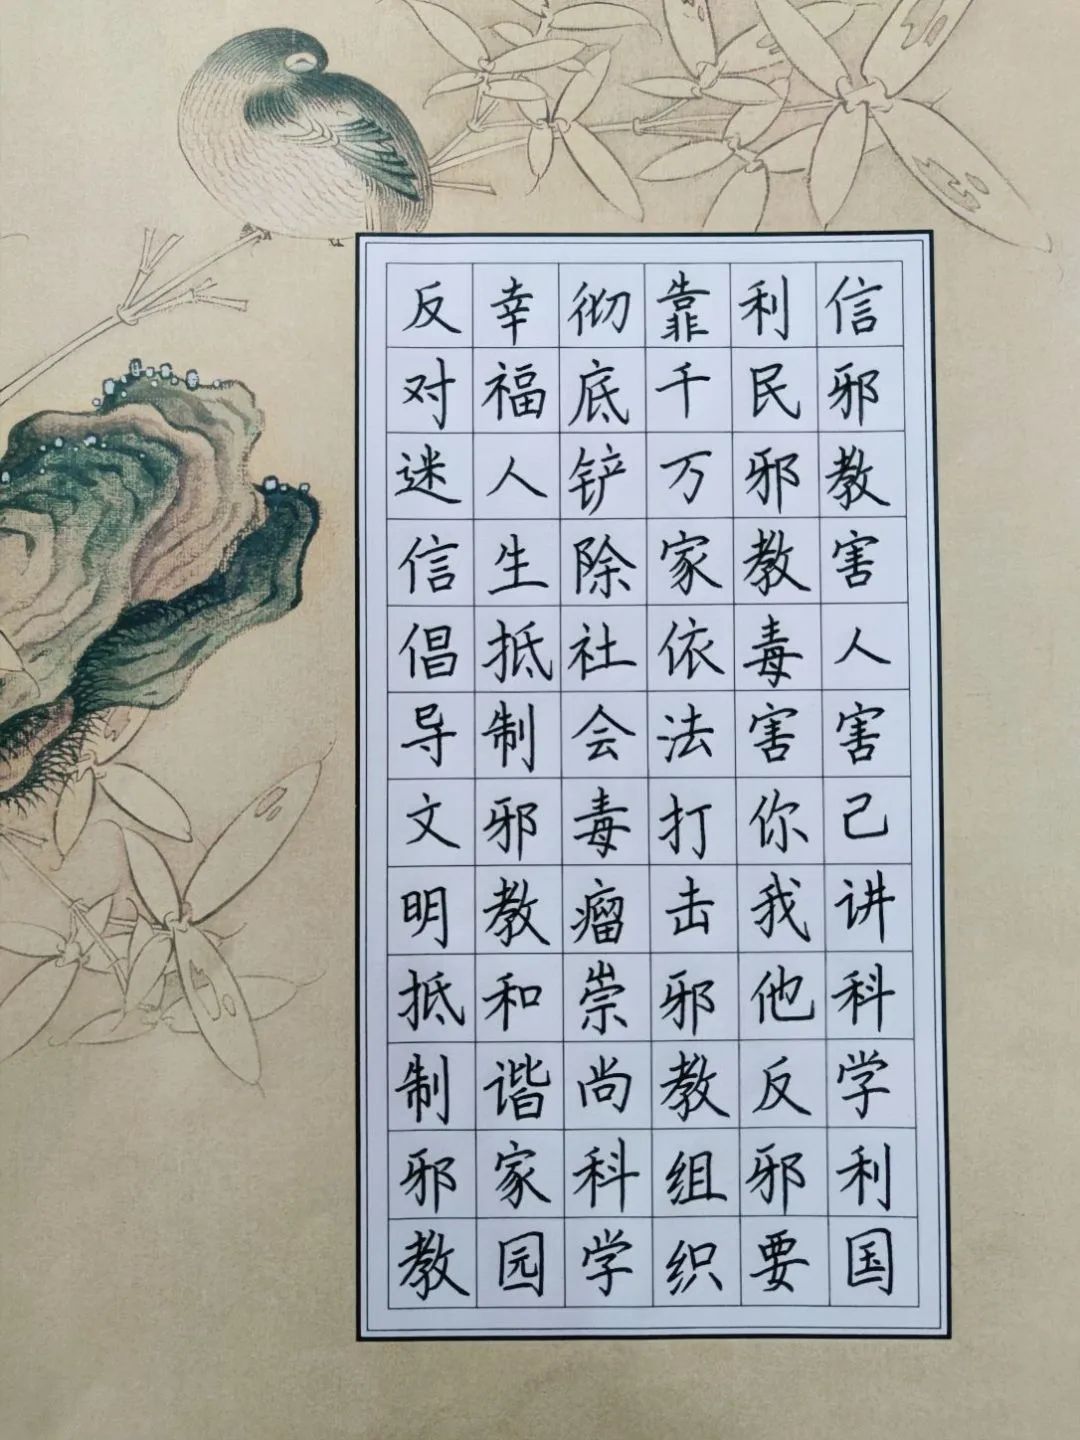 信邪教害人害己讲科学利国
利民邪教毒害你我他反邪要
靠千万家依法打击邪教组织
彻底铲除社会毒瘤崇尚科学
幸福人生抵制邪教和谐家园
反对迷信倡导文明抵制邪教